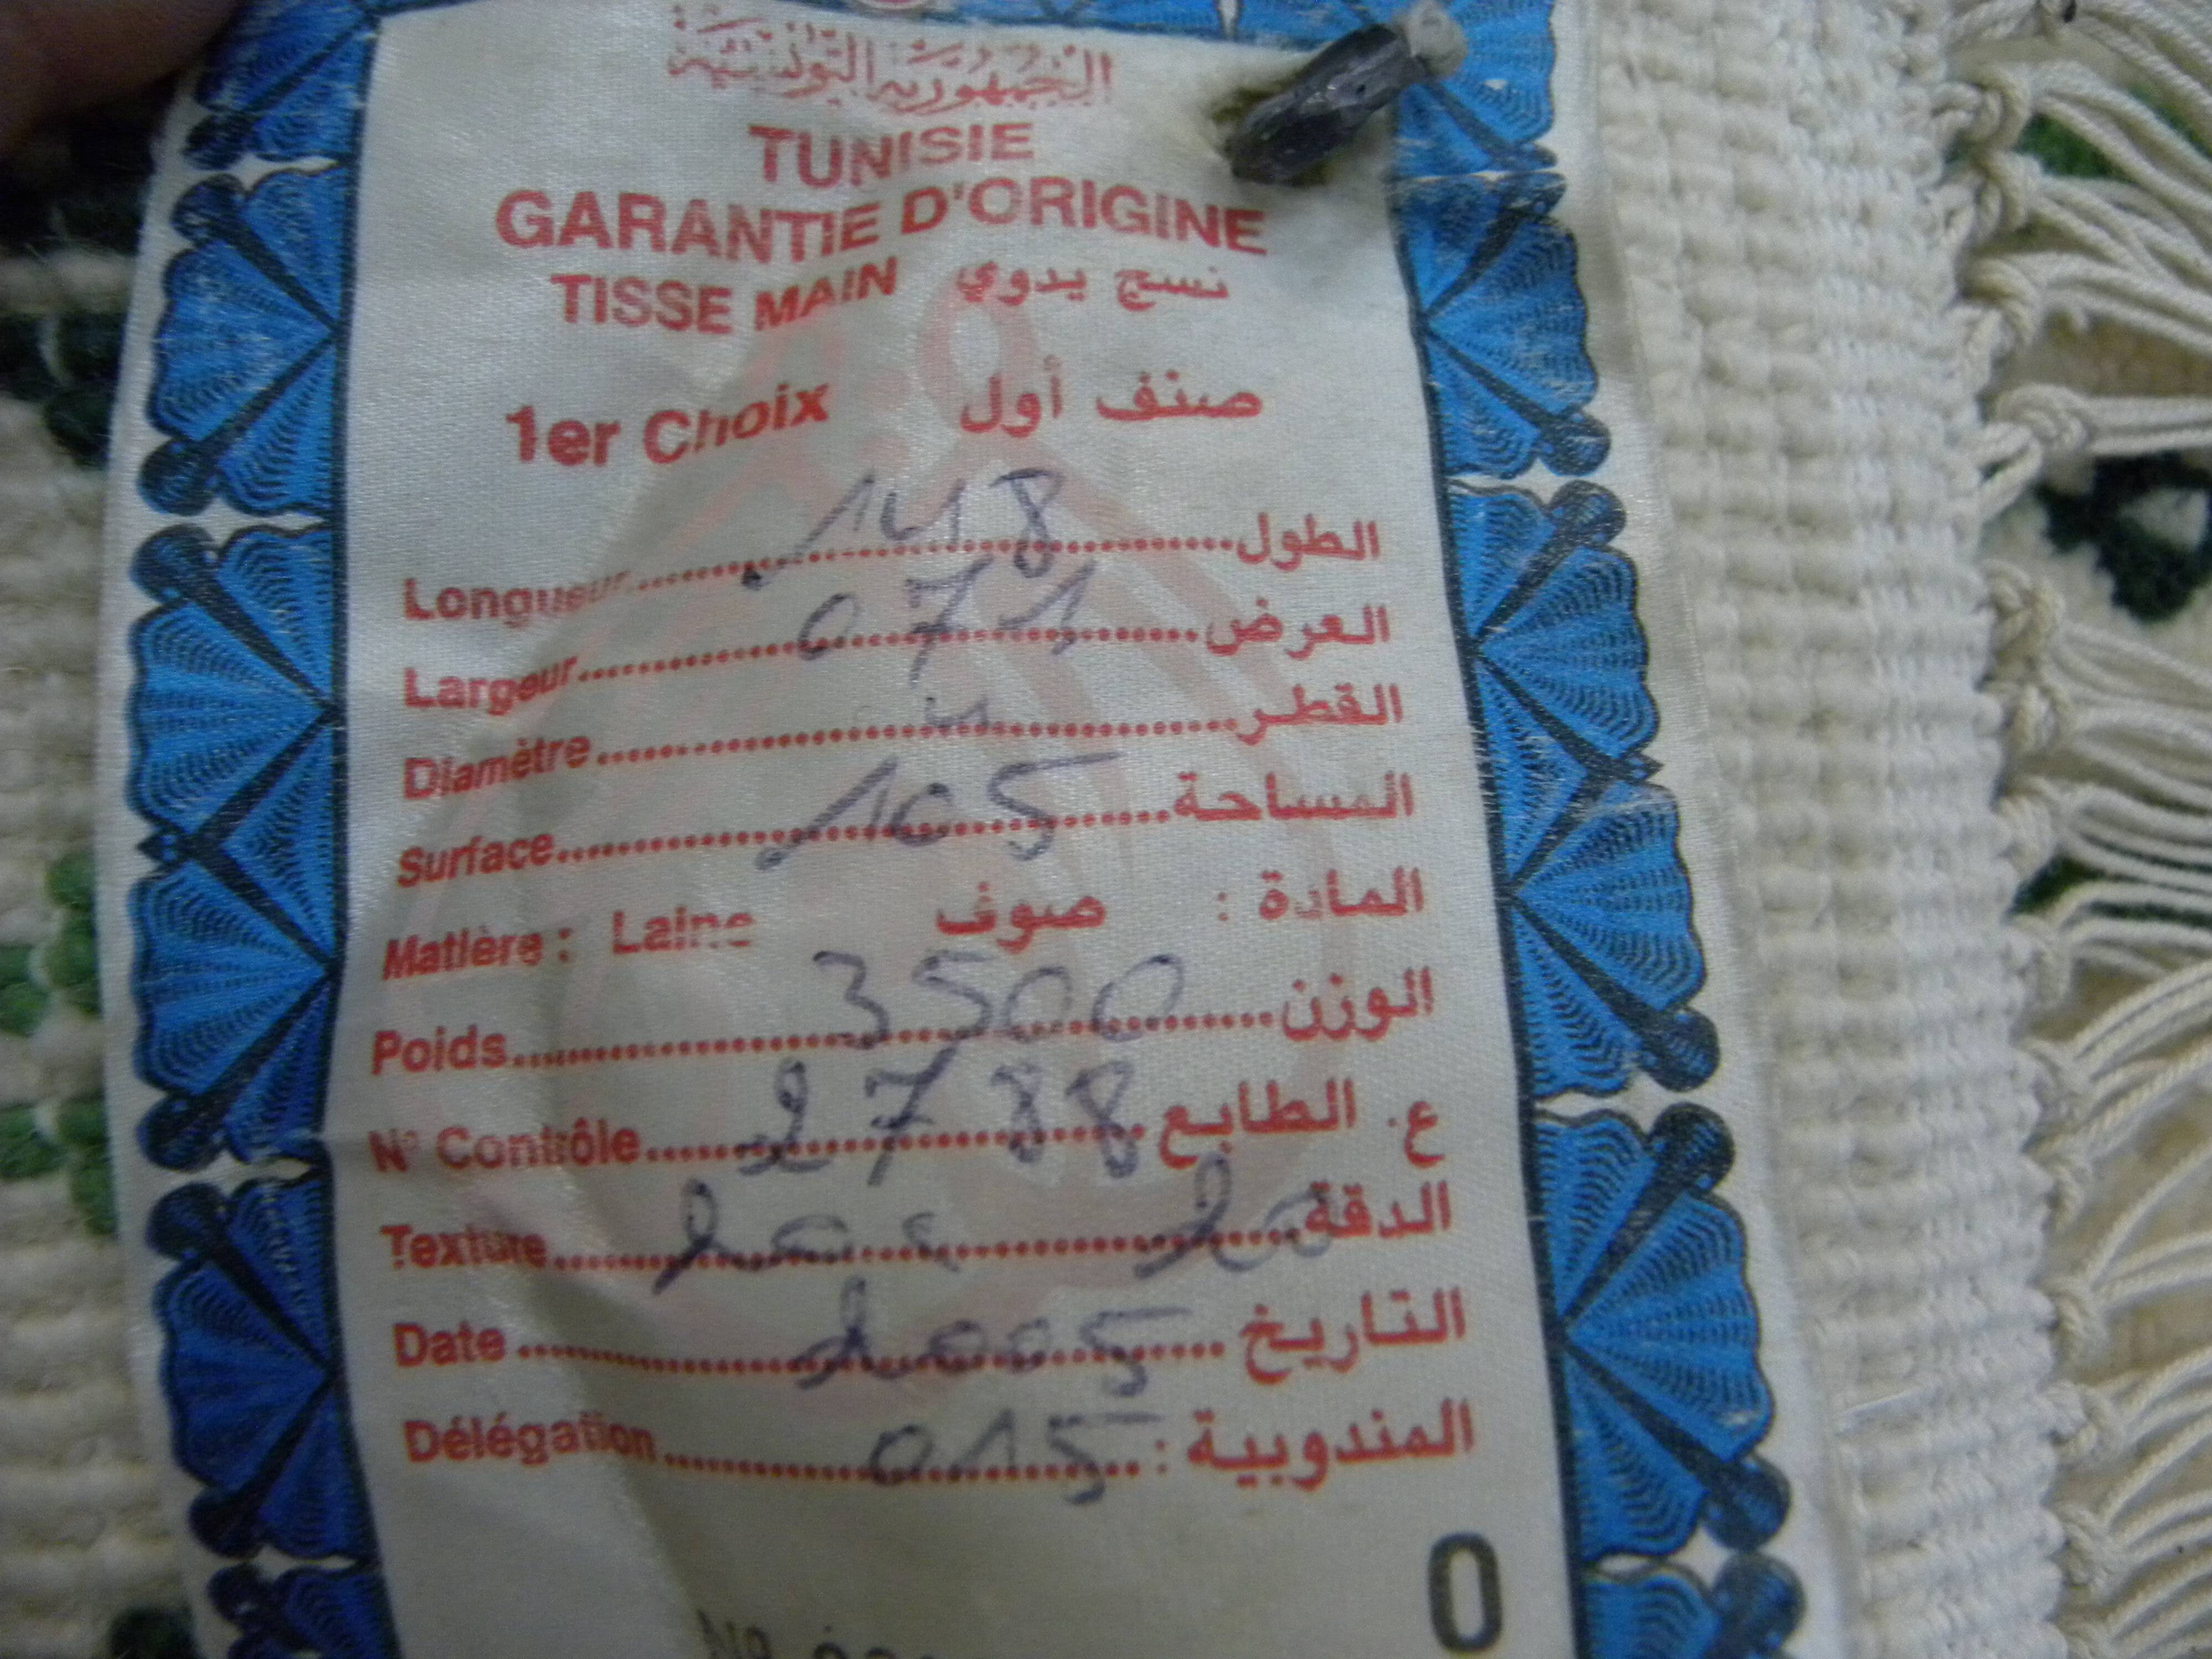 الجمهورية التونسية
TUNISIE
GARANTIE D'ORIGINE
TISSE MAIN نسج يدوي
1er Choix صنف أول
Longueur 148 الطول
Largeur 071 العرض
Diamètre القطر
Surface 105 المساحة
Matière : Laine صوف المادة :
Poids 3500 الوزن
N° Contrôle 2788 ع. الطابع
Texture 20 x 20 الدقة
Date 2005 التاريخ
Délégation 015 المندوبية :
0